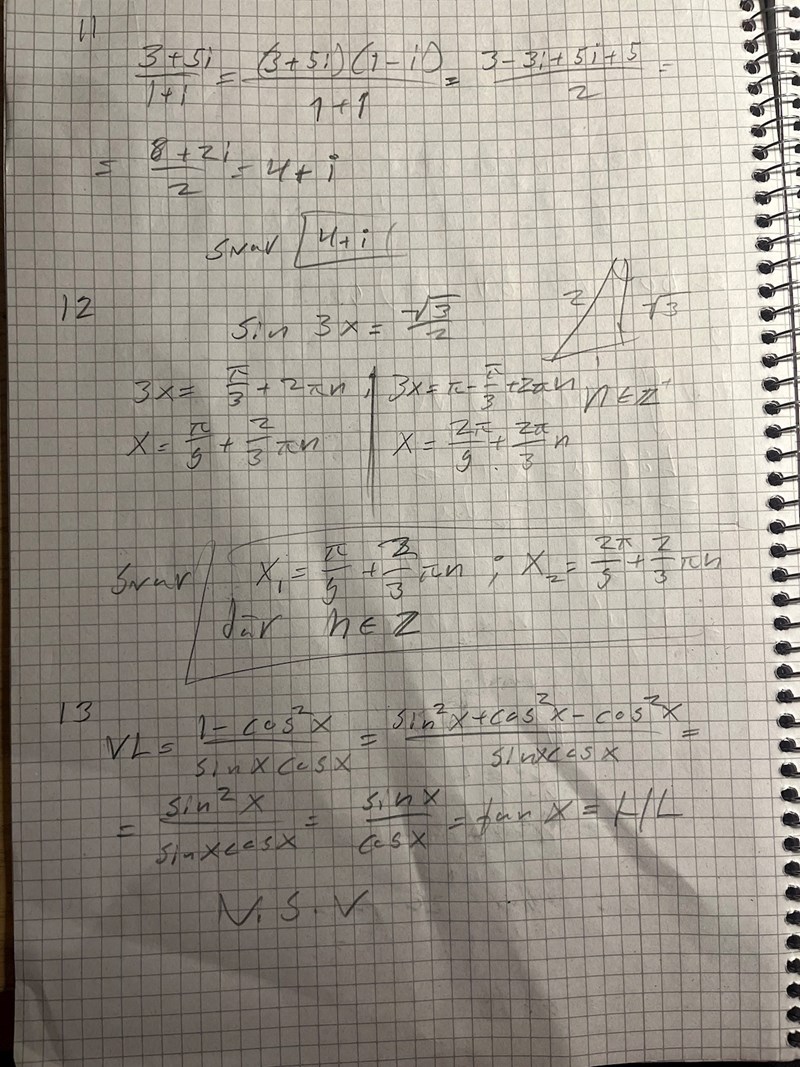 11
(3+5i)/(1+i) = (3+5i)(1-i)/(1+1) = (3-3i+5i+5)/2 =
= (8+2i)/2 = 4+i
svar 4+i
12
sin 3x = √3/2
2 √3
3x = π/3 + 2πn ; 3x = π - π/3 + 2πn, n∈Z
x = π/9 + 2/3 πn x = 2π/9 + 2π/3 n
svar x₁ = π/9 + 2/3 πn ; x₂ = 2π/9 + 2/3 πn
där n∈Z
13
VL = (1-cos²x)/(sinx cosx) = (sin²x+cos²x-cos²x)/(sinxcosx) =
= sin²x/(sinxcosx) = sinx/cosx = tan x = HL
V.S.V